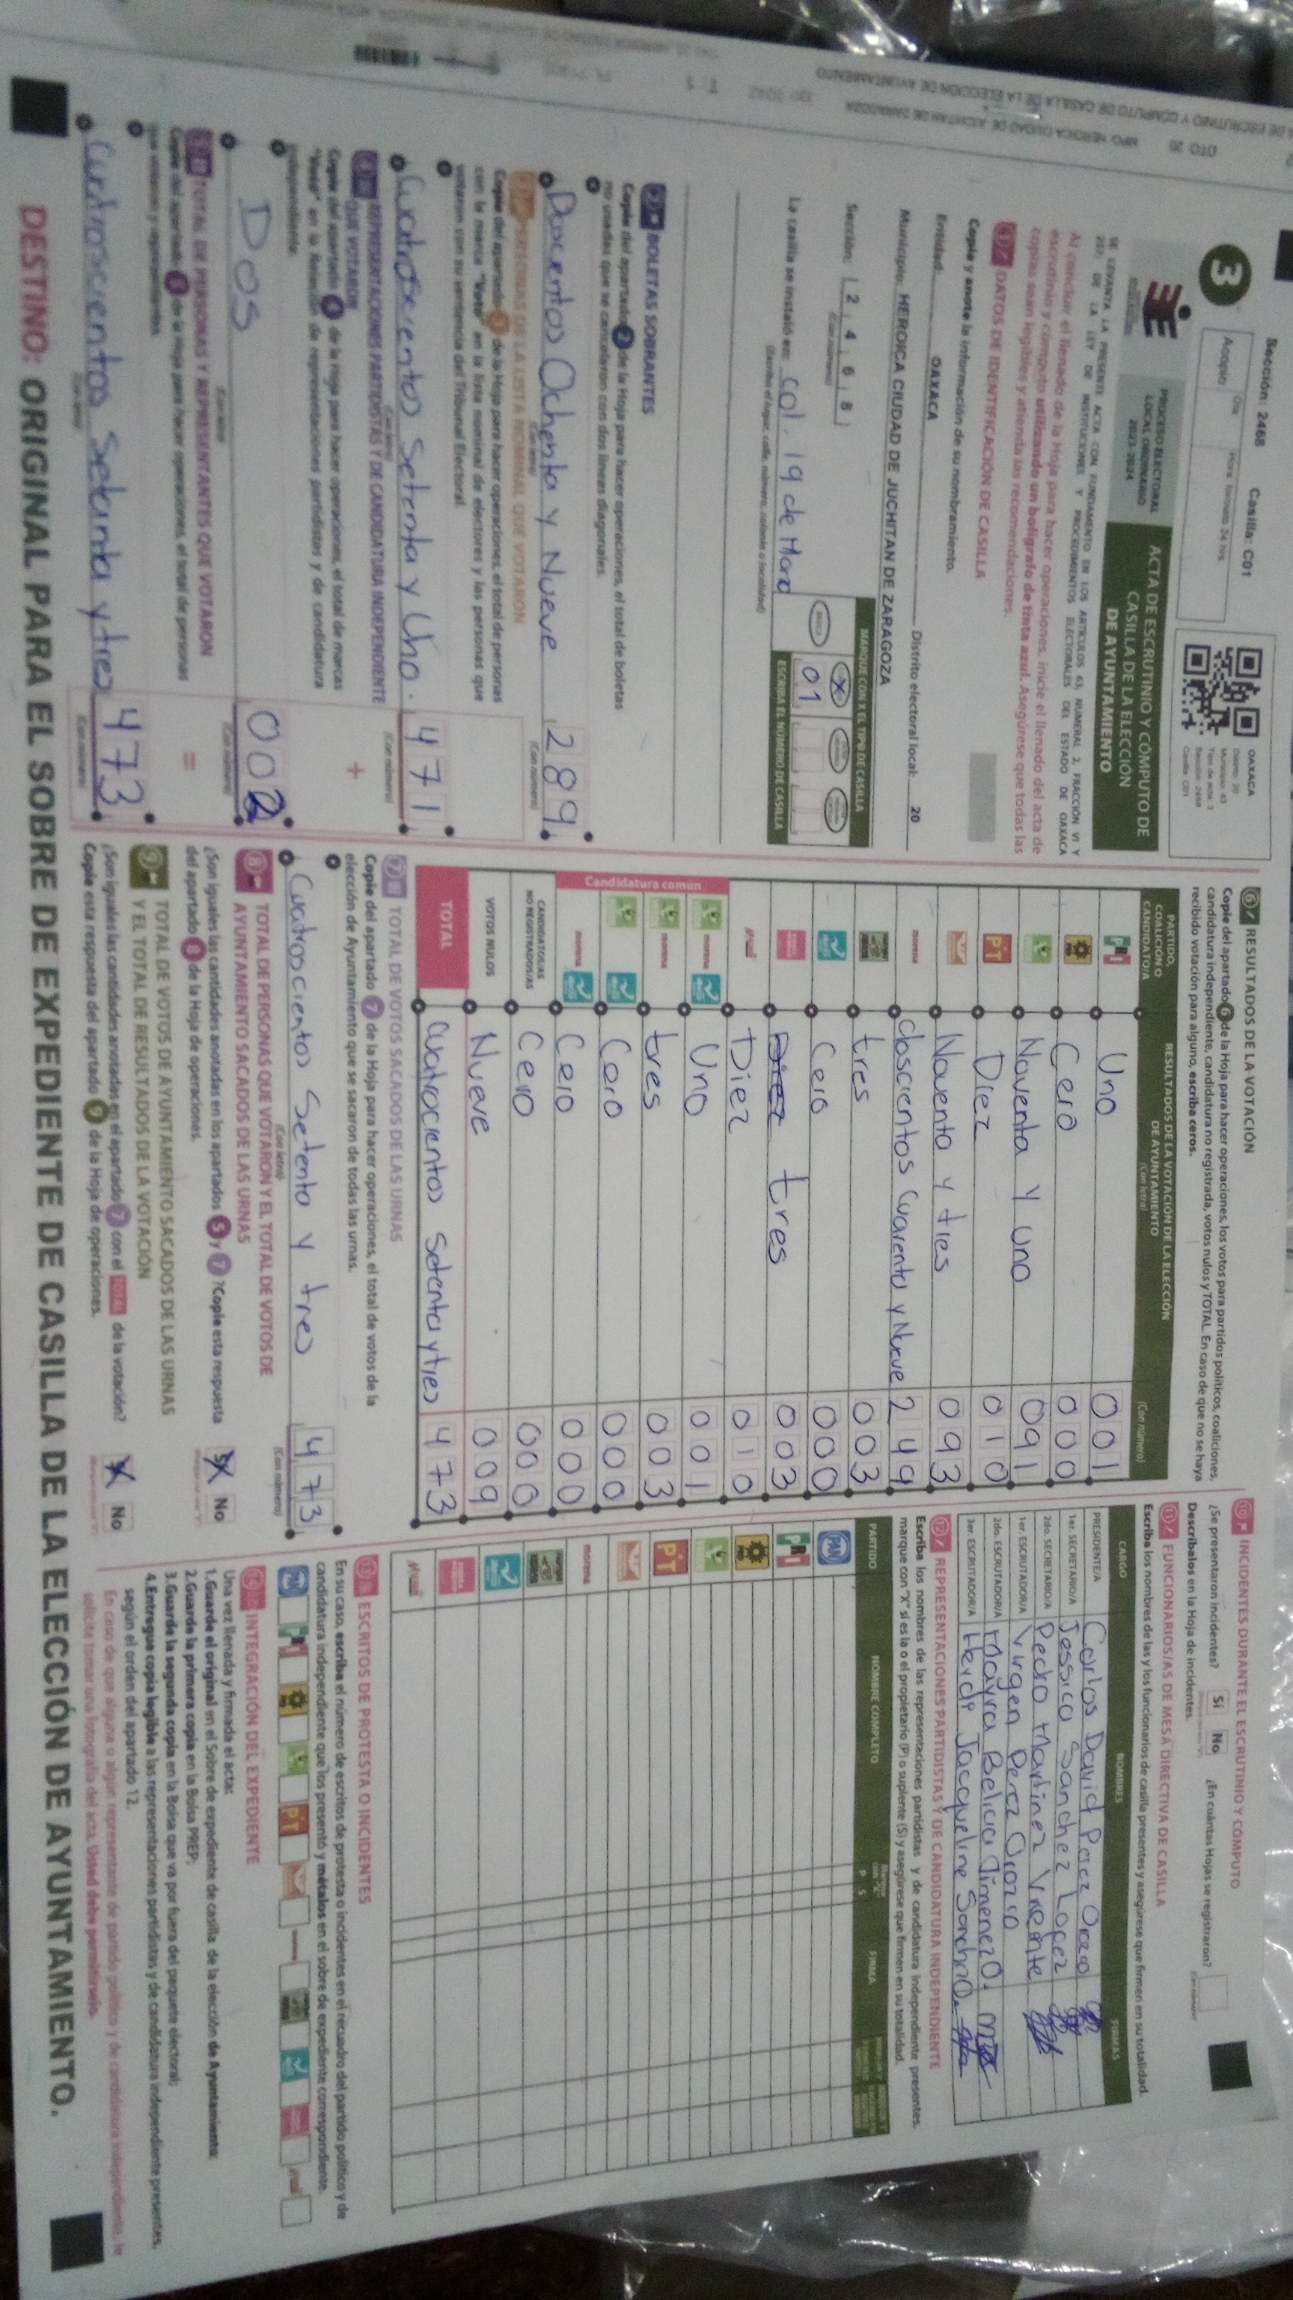 Sección: 2468 Casilla: C01
3
Acopio
OAXACA
PROCESO ELECTORAL
LOCAL ORDINARIO
2023-2024
ACTA DE ESCRUTINIO Y CÓMPUTO DE
CASILLA DE LA ELECCIÓN
DE AYUNTAMIENTO
SE LEVANTA LA PRESENTE ACTA CON FUNDAMENTO EN LOS ARTÍCULOS 63, NUMERAL 2, FRACCIÓN VI Y
DE LA LEY DE INSTITUCIONES Y PROCEDIMIENTOS ELECTORALES DEL ESTADO DE OAXACA
Al concluir el llenado de la Hoja para hacer operaciones, inicie el llenado del acta de
escrutinio y cómputo utilizando un bolígrafo de tinta azul. Asegúrese que todas las
copias sean legibles y atienda las recomendaciones.
1 DATOS DE IDENTIFICACIÓN DE CASILLA
Copie y anote la información de su nombramiento.
Entidad: OAXACA Distrito electoral local: 20
Municipio: HEROICA CIUDAD DE JUCHITAN DE ZARAGOZA
Sección: 2 4 6 8
(Con número)
MARQUE CON X EL TIPO DE CASILLA
X
01
ESCRIBA EL NÚMERO DE CASILLA
La casilla se instaló en: col. 19 de Marzo
(Escriba el lugar: calle, número, colonia o localidad)
2 BOLETAS SOBRANTES
Copie del apartado 2 de la Hoja para hacer operaciones, el total de boletas
no usadas que se cancelaron con dos líneas diagonales.
Doscientos Ochenta y Nueve 289
(Con letra) (Con número)
3 PERSONAS DE LA LISTA NOMINAL QUE VOTARON
Copie del apartado 3 de la Hoja para hacer operaciones, el total de personas
con la marca "Votó" en la lista nominal de electores y las personas que
votaron con su sentencia del Tribunal Electoral.
Cuatroscientos Setenta y Uno. 471
(Con letra) (Con número)
4 REPRESENTACIONES PARTIDISTAS Y DE CANDIDATURA INDEPENDIENTE
QUE VOTARON
+
Copie del apartado 4 de la Hoja para hacer operaciones, el total de marcas
"Votó" en la Relación de representaciones partidistas y de candidatura
independiente.
Dos 002
(Con letra) (Con número)
5 TOTAL DE PERSONAS Y REPRESENTANTES QUE VOTARON
=
Copie del apartado 5 de la Hoja para hacer operaciones, el total de personas
que votaron y representantes.
Cuatroscientos Setenta y tres 473
(Con letra) (Con número)
6 RESULTADOS DE LA VOTACIÓN
Copie del apartado 6 de la Hoja para hacer operaciones, los votos para partidos políticos, coaliciones,
candidatura independiente, candidatura no registrada, votos nulos y TOTAL. En caso de que no se haya
recibido votación para alguno, escriba ceros.
PARTIDO,
COALICIÓN O
CANDIDATO/A
RESULTADOS DE LA VOTACIÓN DE LA ELECCIÓN
DE AYUNTAMIENTO
(Con letra) (Con número)
PRI Uno 001
PRD Cero 000
Noventa y uno 091
PT Diez 010
Noventa y tres 093
morena doscientos Cuarenta y Nueve 249
tres 003
Cero 000
Diez tres 003
Diez 010
Candidatura común
morena Uno 001
morena tres 003
Cero 000
morena Cero 000
CANDIDATOS/AS
NO REGISTRADOS/AS Cero 000
VOTOS NULOS Nueve 009
TOTAL Cuatrocientos Setenta y tres 473
7 TOTAL DE VOTOS SACADOS DE LAS URNAS
Copie del apartado 7 de la Hoja para hacer operaciones, el total de votos de la
elección de Ayuntamiento que se sacaron de todas las urnas.
Cuatroscientos Setenta y tres 473
(Con letra) (Con número)
8 TOTAL DE PERSONAS QUE VOTARON Y EL TOTAL DE VOTOS DE
AYUNTAMIENTO SACADOS DE LAS URNAS
¿Son iguales las cantidades anotadas en los apartados 5 y 7? Copie esta respuesta
del apartado 8 de la Hoja de operaciones.
X No
9 TOTAL DE VOTOS DE AYUNTAMIENTO SACADOS DE LAS URNAS
Y EL TOTAL DE RESULTADOS DE LA VOTACIÓN
¿Son iguales las cantidades anotadas en el apartado 7 con el TOTAL de la votación?
Copie esta respuesta del apartado 9 de la Hoja de operaciones.
X No
10 INCIDENTES DURANTE EL ESCRUTINIO Y CÓMPUTO
¿Se presentaron incidentes? Sí No ¿En cuántas Hojas se registraron?
(Con número)
Descríbalos en la Hoja de incidentes.
11 FUNCIONARIOS/AS DE MESA DIRECTIVA DE CASILLA
Escriba los nombres de las y los funcionarios de casilla presentes y asegúrese que firmen en su totalidad.
CARGO NOMBRES FIRMAS
PRESIDENTE/A Carlos David Perez Orozco
1er. SECRETARIO/A Jessica Sanchez Lopez
2do. SECRETARIO/A Pedro Martinez Vicente
1er. ESCRUTADOR/A Virgen Perez Orozco
2do. ESCRUTADOR/A Mayra Belicia Jimenez O.
3er. ESCRUTADOR/A Heidi Jacqueline Sanchez O.
12 REPRESENTACIONES PARTIDISTAS Y DE CANDIDATURA INDEPENDIENTE
Escriba los nombres de las representaciones partidistas y de candidatura independiente presentes,
marque con "X" si es la o el propietario (P) o suplente (S) y asegúrese que firmen en su totalidad.
PARTIDO NOMBRE COMPLETO P S FIRMA
PAN
PRI
PRD
PT
morena
13 ESCRITOS DE PROTESTA O INCIDENTES
En su caso, escriba el número de escritos de protesta o incidentes en el recuadro del partido político y de
candidatura independiente que los presentó y métalos en el sobre de expediente correspondiente.
PAN PRI PRD PT
INTEGRACIÓN DEL EXPEDIENTE
Una vez llenada y firmada el acta:
1.Guarde el original en el Sobre de expediente de casilla de la elección de Ayuntamiento;
2.Guarde la primera copia en la Bolsa PREP;
3.Guarde la segunda copia en la Bolsa que va por fuera del paquete electoral;
4.Entregue copia legible a las representaciones partidistas y de candidatura independiente presentes,
según el orden del apartado 12.
En caso de que alguna o algún representante de partido político y de candidatura independiente, le
solicite tomar una fotografía del acta, Usted debe permitírselo.
DESTINO: ORIGINAL PARA EL SOBRE DE EXPEDIENTE DE CASILLA DE LA ELECCIÓN DE AYUNTAMIENTO.